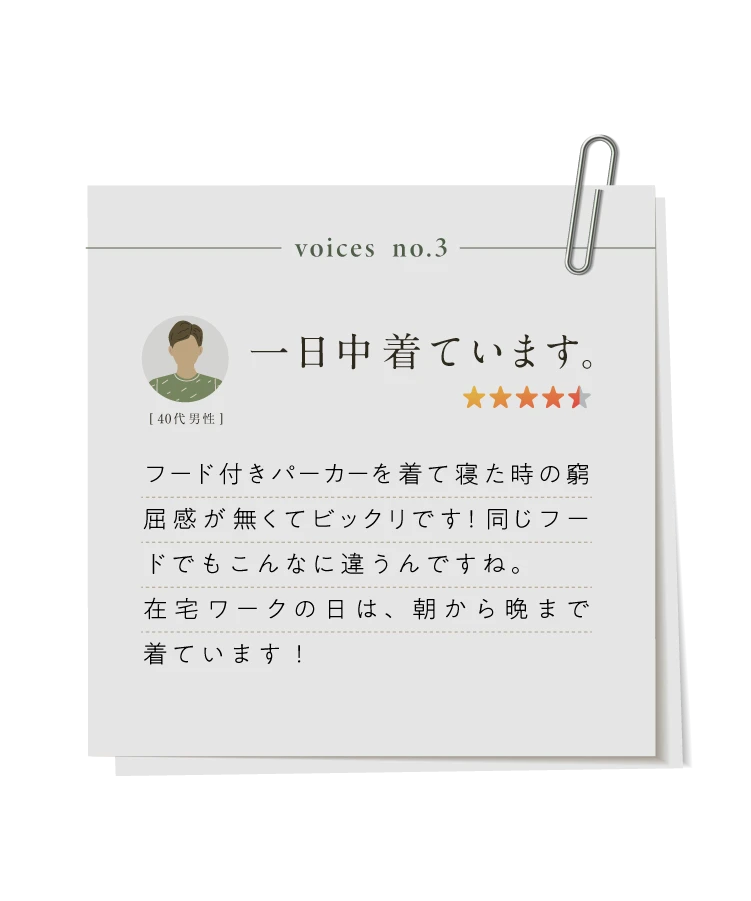 voices no.3
一日中着ています。
[ 40代男性 ]
フード付きパーカーを着て寝た時の窮
屈感が無くてビックリです! 同じフー
ドでもこんなに違うんですね。
在宅ワークの日は、朝から晩まで
着ています！